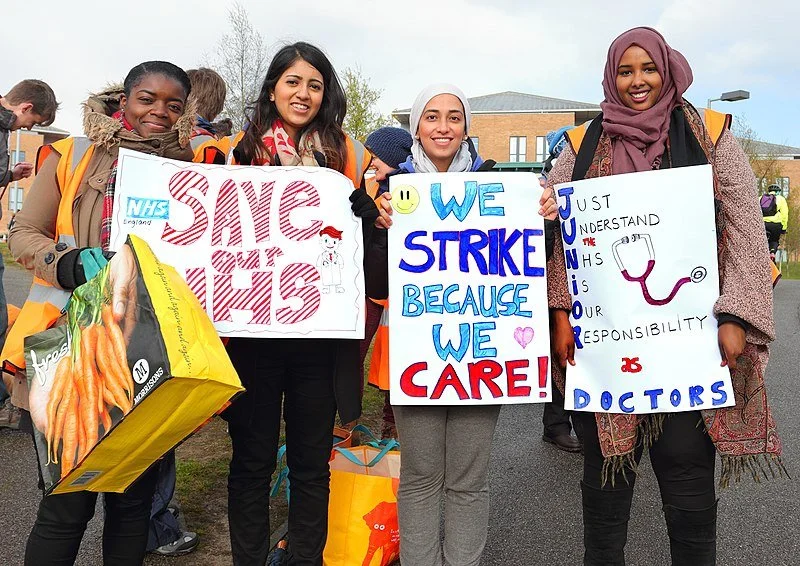 NHS
England
SAVE
our
NHS
WE
STRIKE
BECAUSE
WE
CARE!
JUST
UNDERSTAND
THE NHS
IS
OUR
RESPONSIBILITY
AS
DOCTORS
M
MORRISONS